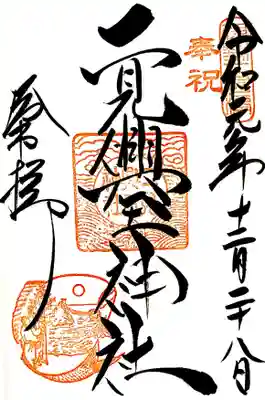 奉祝
令和元年十二月二十八日
二見興玉神社
奉拝